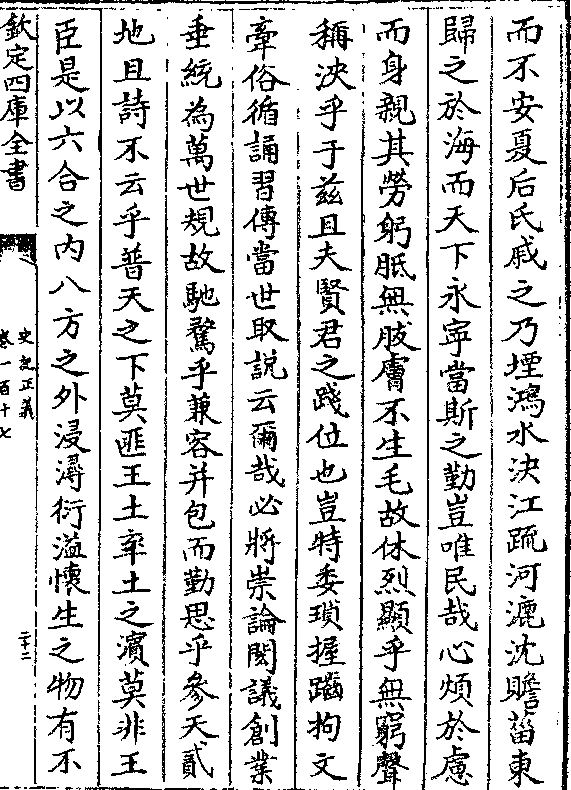 而不安夏后氏戚之乃堙鴻水決江疏河漉沈贍菑東
歸之於海而天下永寧當斯之勤豈唯民哉心煩於慮
而身親其勞躬胝無胈膚不生毛故休烈顯乎無窮聲
稱浹乎于兹且夫賢君之踐位也豈特委瑣握躖拘文
牽俗循誦習傳當世取説云爾哉必將崇論閎議創業
垂統為萬世規故馳騖乎兼容并包而勤思乎參天貳
地且詩不云乎普天之下莫匪王土率土之濱莫非王
臣是以六合之内八方之外浸潯衍溢懷生之物有不
欽定四庫全書
史記正義
卷一百十七
二十二